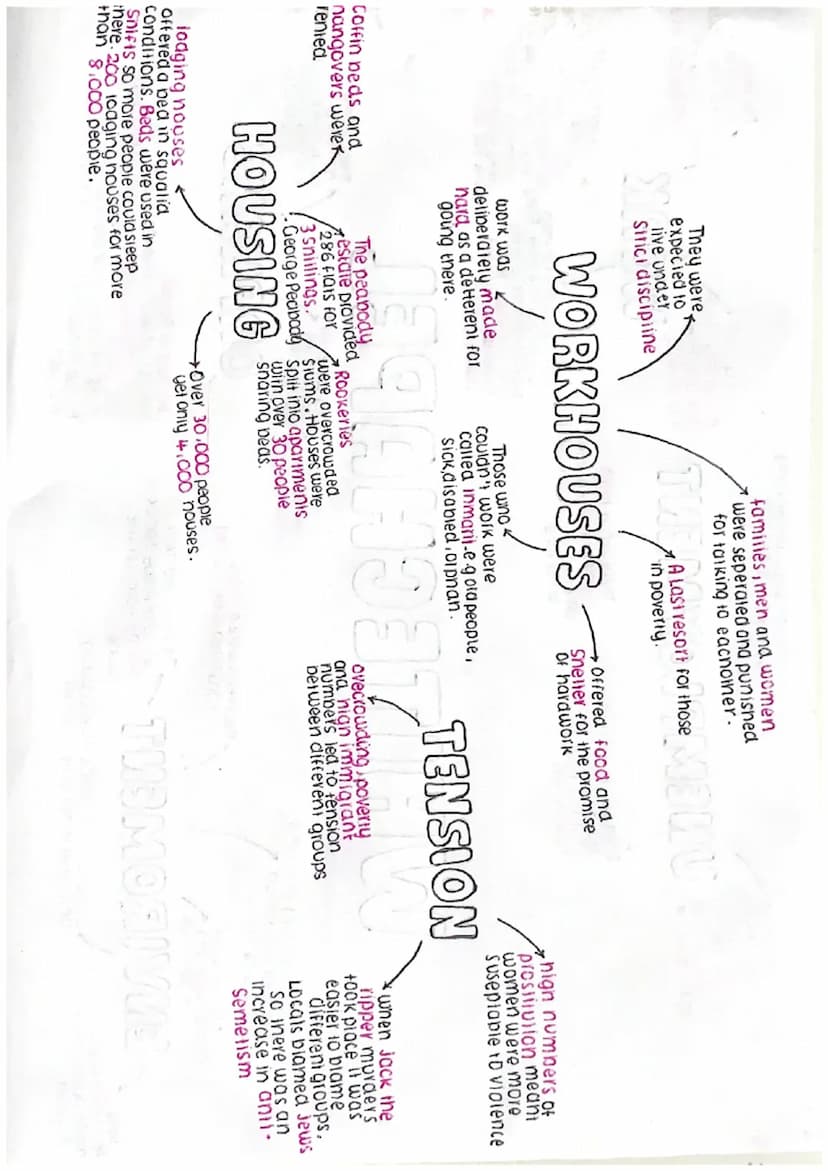 WORKHOUSES
They were
expected to
live under
strict discipline
families, men and women
were seperated and punished
for talking to eachother.
A last resort for those
in poverty.
offered food and
shelter for the promise
of hardwork
work was
deliberately made
hard as a deterrent for
going there.
Those who
couldn't work were
called inmant. e.g old people,
sick, disabled, orphan.
HOUSING
Coffin beds and
hangovers were
rented
lodging houses
offered a bed in squalid
conditions. Beds were used in
shifts so more people could sleep
there. 200 lodging houses for more
than 8,000 people.
The peabody
estate provided
286 flats for
3 shillings.
George Peabody
Rookeries
were overcrowded
slums. Houses were
split into apartments
with over 30 people
sharing beds.
Over 30,000 people
yet only 4,000 houses.
TENSION
overcrowding, poverty
and high immigrant
numbers led to tension
between different groups
high numbers of
prostitution meant
women were more
suseptable to violence
when jack the
ripper murders
took place it was
easier to blame
different groups.
Locals blamed jews
so there was an
increase in anti-
semetism